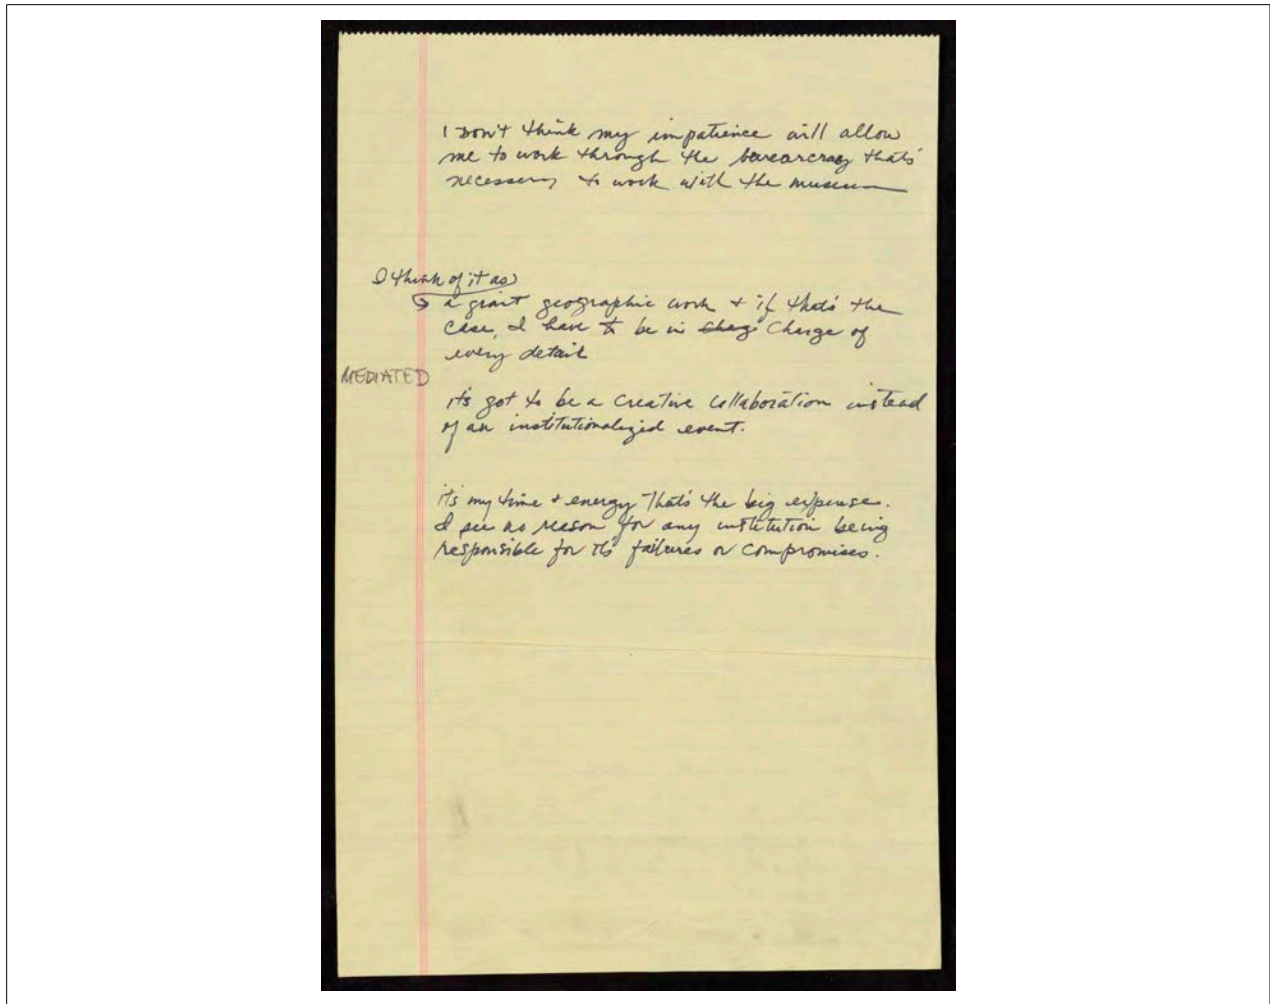 I Don't think my impatience will allow
me to work through the burearcracy that's
necessary to work with the museum
I think of it as
a giant geographic work + if that's the
case, I have to be in charg Charge of
every detail
MEDIATED
it's got to be a creative collaboration instead
of an institutionalized event.
it's my time + energy that's the big expense.
I see no reason for any institution being
responsible for its' failures or compromises.